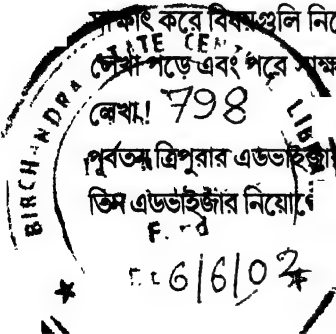 সাক্ষাৎ করে বিষয়গুলি নিয়ে
লেখা পড়ে এবং পরে সাক্ষ
লেখা! 798
পূর্বতন ত্রিপুরার এডভাইজার
তিন এডভাইজার নিয়োগে
BIRCHANDRA STATE CENTRAL LIB
6/6/02